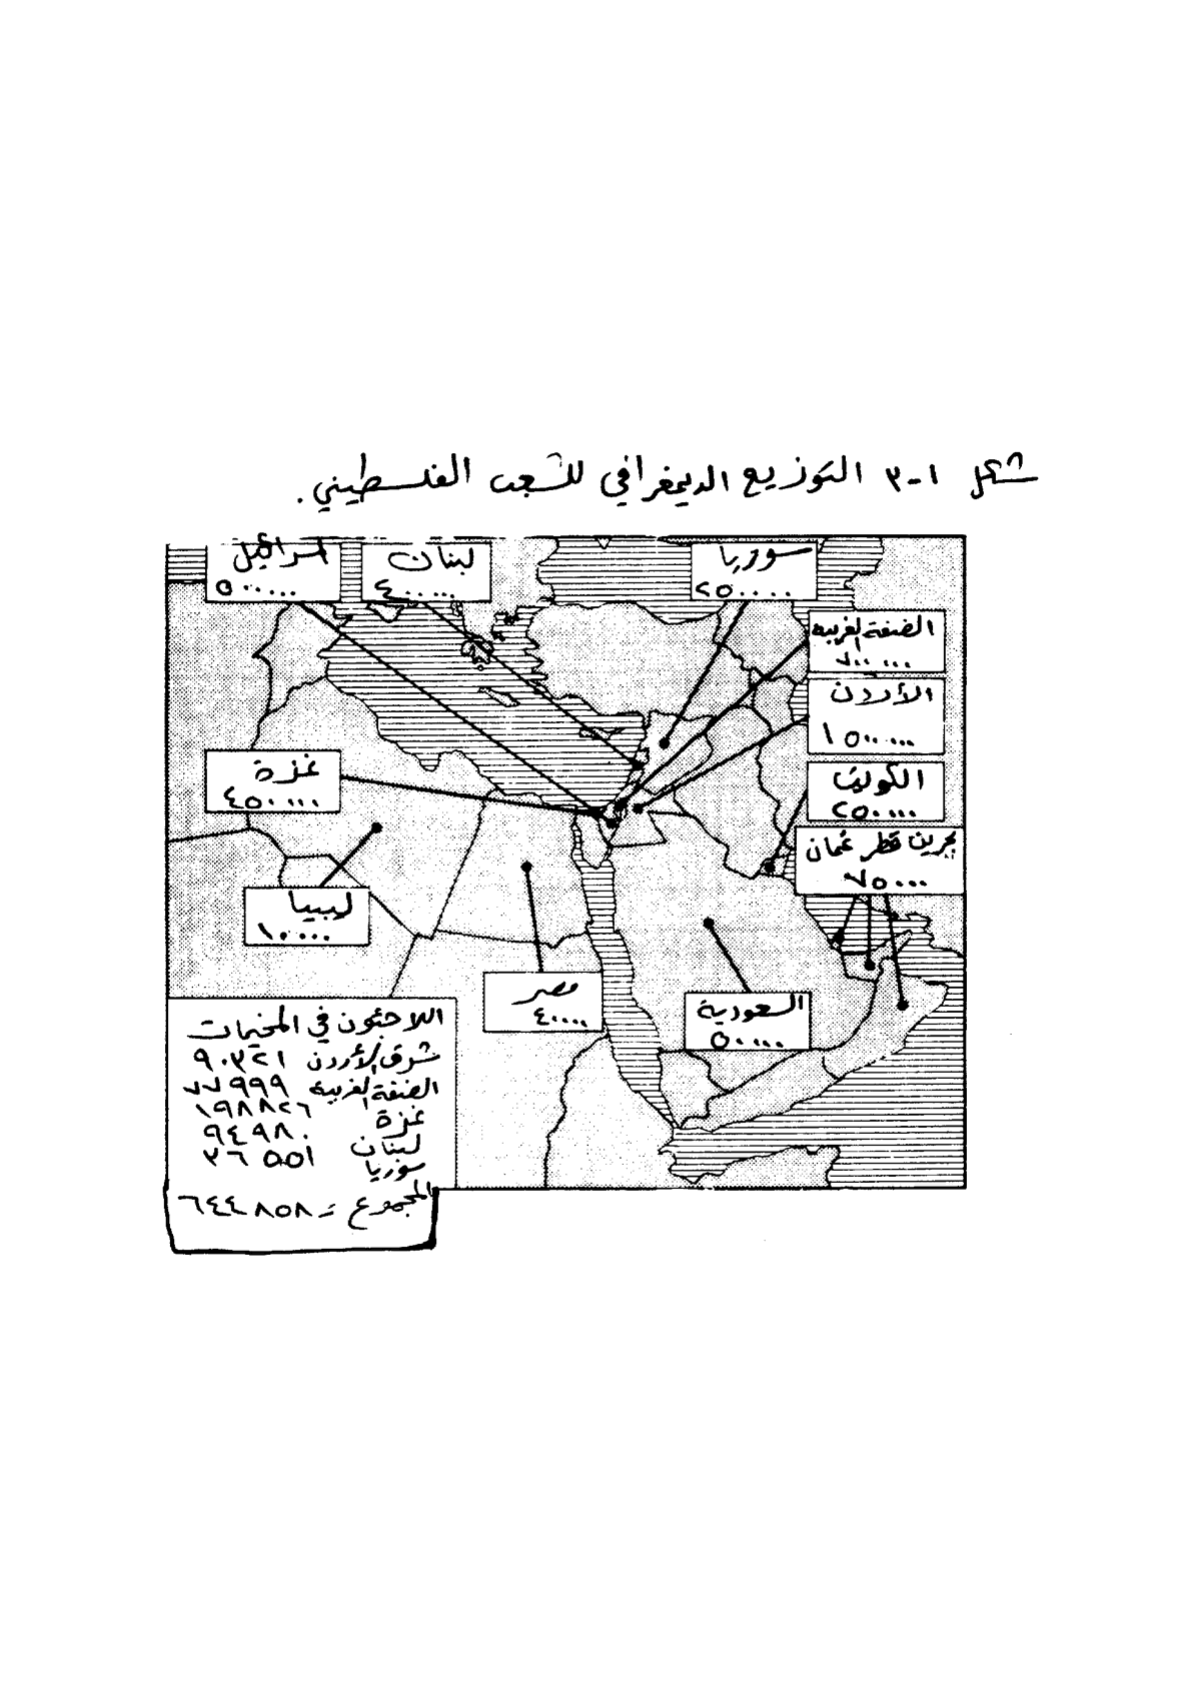 شكل ١-٣ التوزيع الديمغرافي للشعب الفلسطيني.
اسرائيل
٥٠٠٠٠٠
لبنان
٤٠٠٠٠٠
سوريا
٢٥٠٠٠٠
الضفة الغربية
٧٠٠٠٠٠
الأردن
١٥٠٠٠٠٠
غزة
٤٥٠٠٠٠
الكويت
٢٥٠٠٠٠
بحرين قطر عُمان
٧٥٠٠٠
ليبيا
١٠٠٠٠
مصر
٤٠٠٠٠
السعودية
٥٠٠٠٠
اللاجئون في المخيمات
شرق الأردن ٩٠٣٢١
الضفة الغربية ٧٧٩٩٩
غزة ١٩٨٨٢٦
لبنان ٩٤٩٨٠
سوريا ٣٦٥٥١
المجموع = ٦٤٤٨٥٨